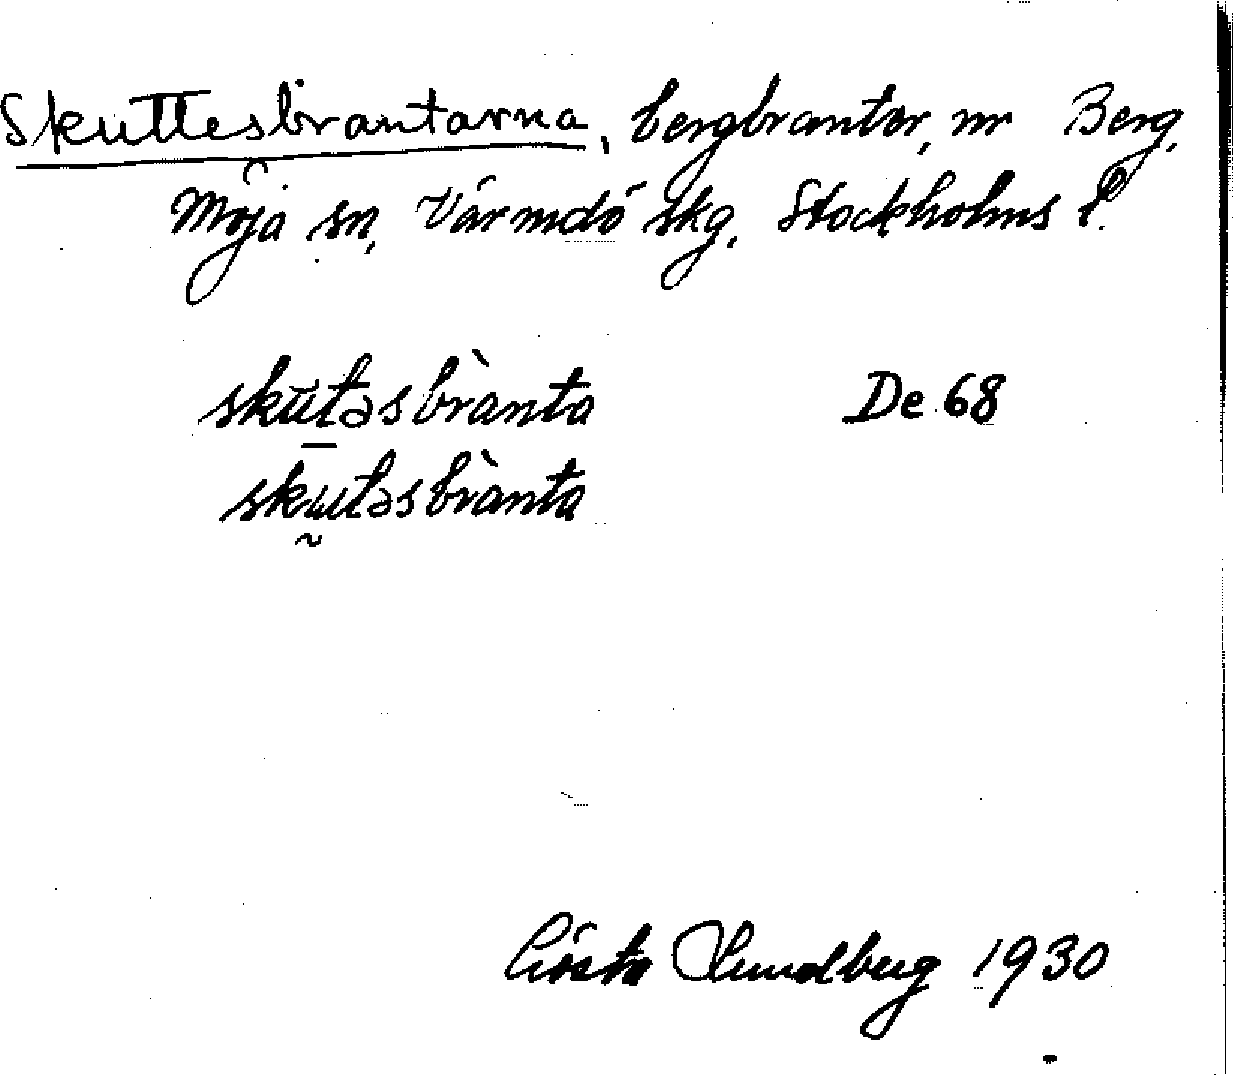 Skuttesbrantarna, bergbrantar, nr Berg,
Möja sn, Värmdö skg, Stockholms l.
skut̠əsbrànta De 68
skut̰əsbrànta
Gösta Lundberg 1930